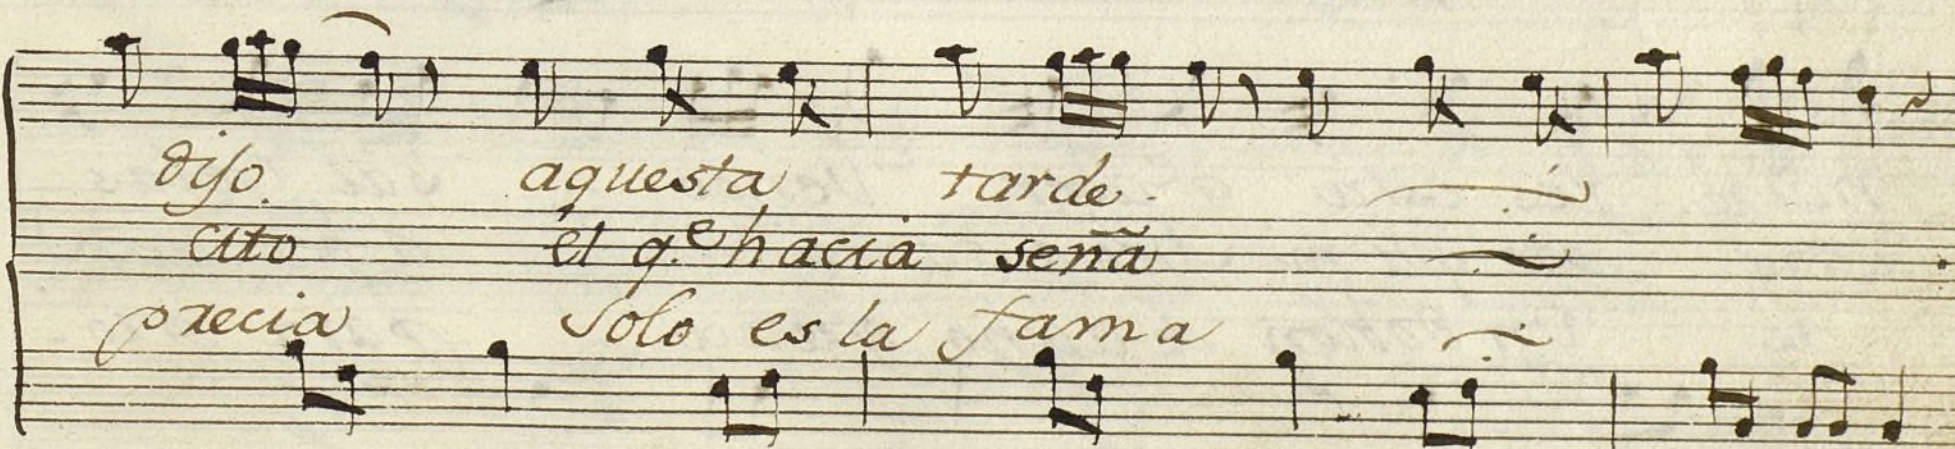 dijo aquesta tarde.
cito el q.e hacia señà
precia solo es la fama